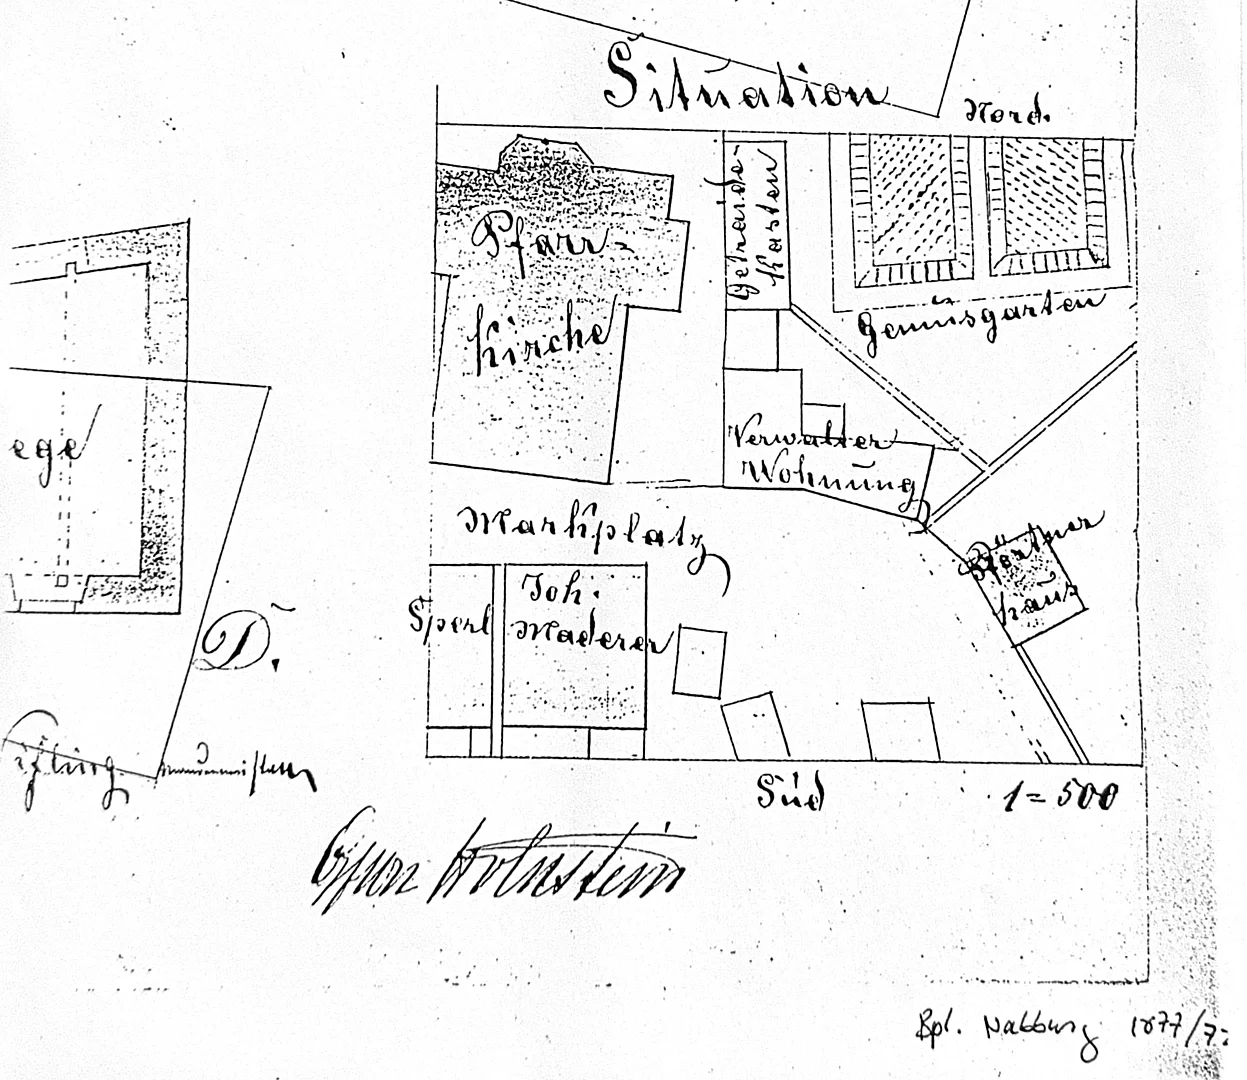 Situation
Nord.
Pfarr-
kirche
Getraide-
kasten
Gemüsgarten
Verwalter
Wohnung
Marktplatz
Pförtner
haus
Sperl
Joh.
Maderer
ege
D.
Süd
1 = 500
Holnstein
Bpl. Nabburg 1877/7